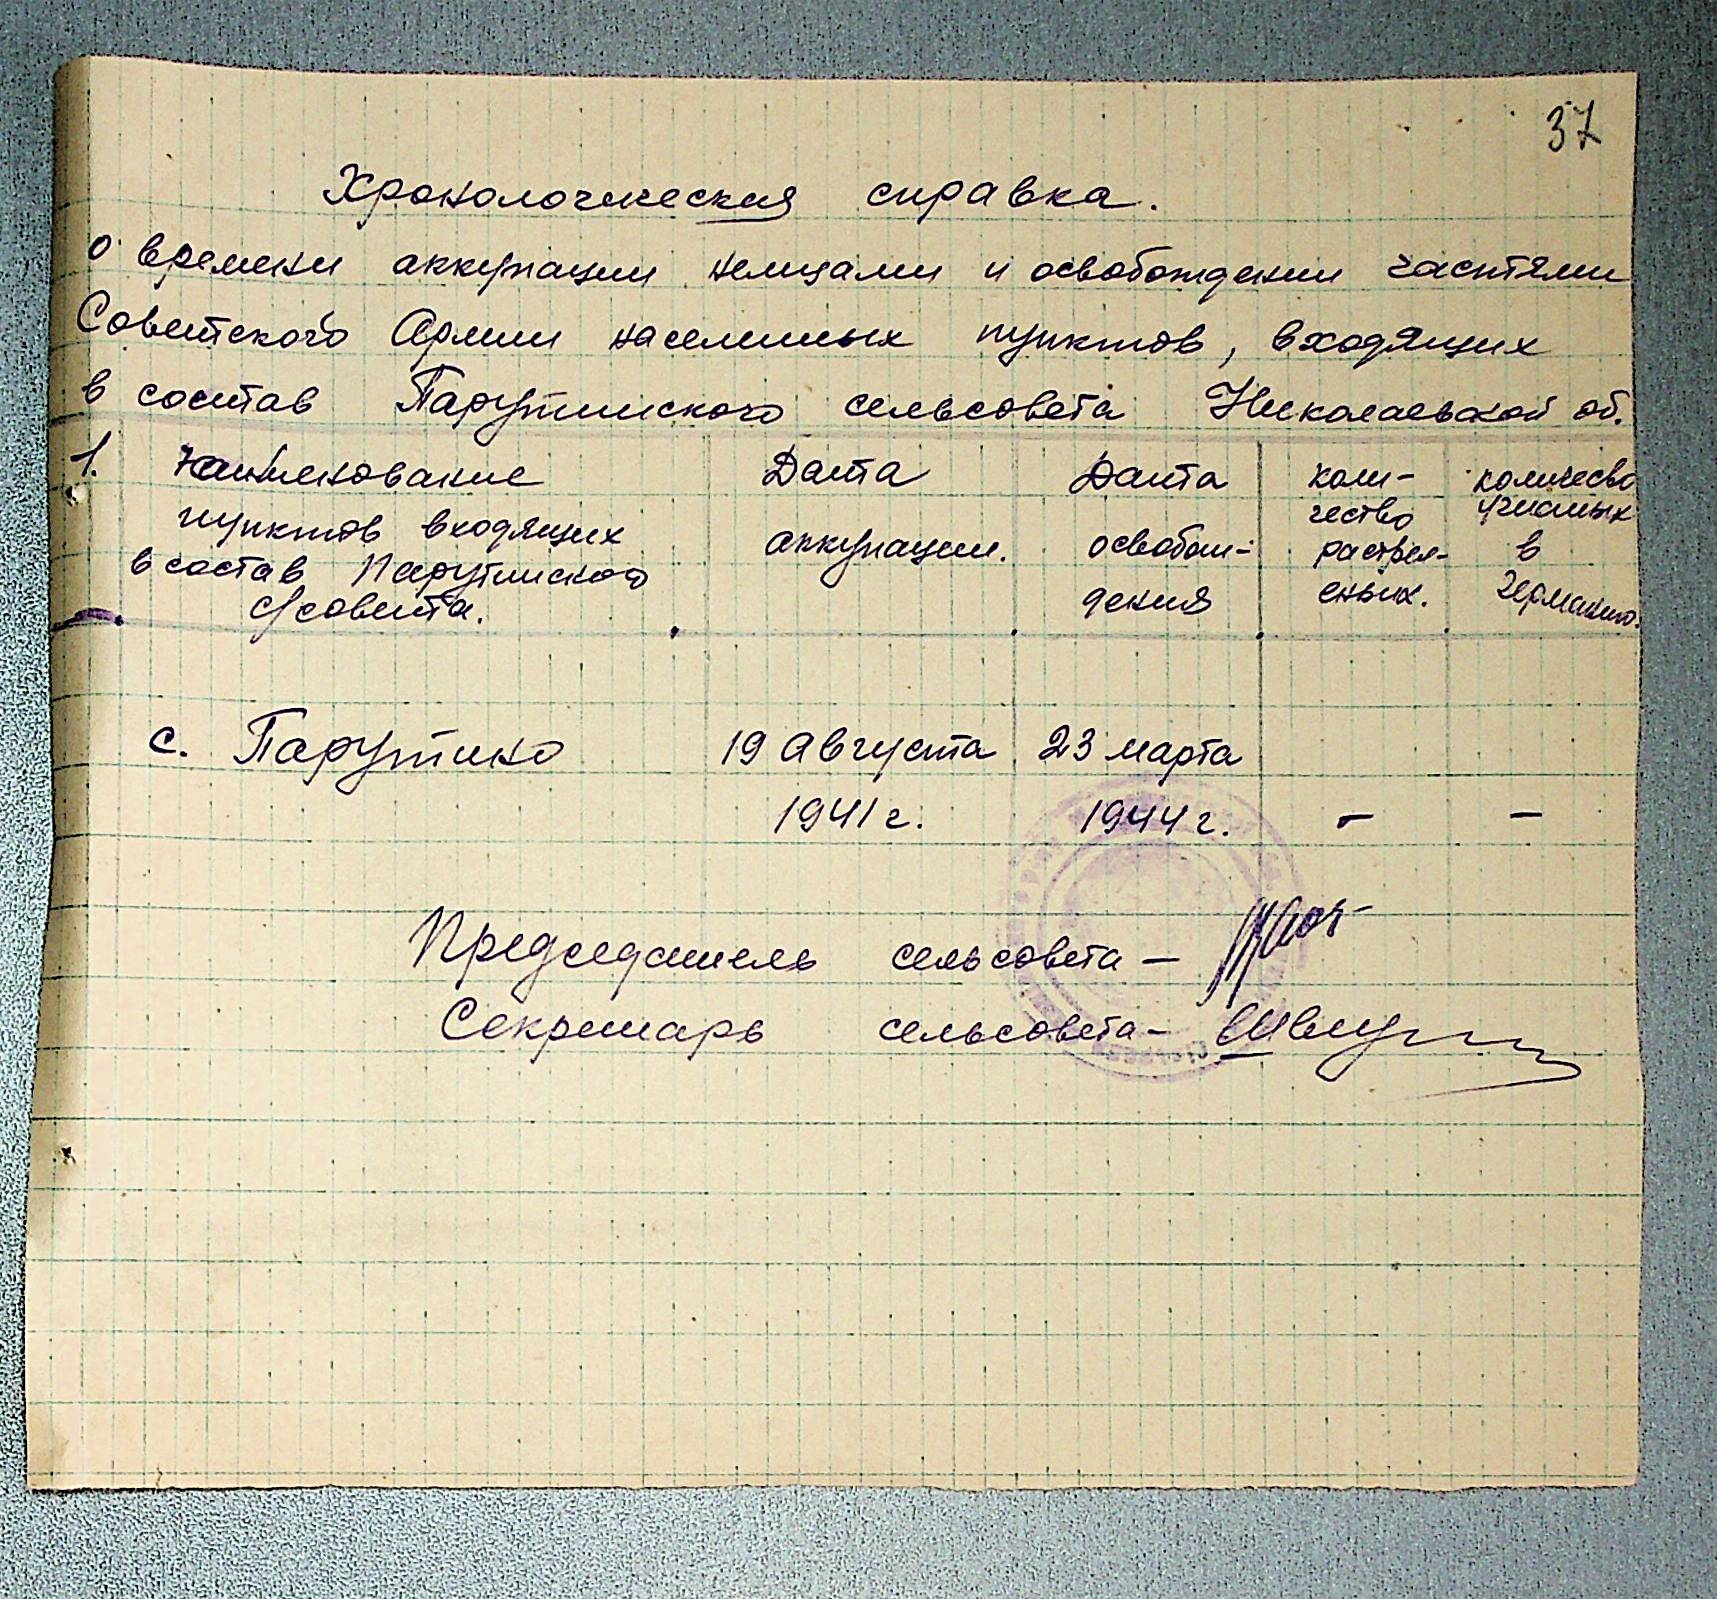 37
Хронологическая справка.
о времени аккупации немцами и освобождении частями
Советского Армии населенных пунктов, входящих
в состав Парутинского сельсовета Николаевской об.
1. Наименование Дата Дата коли- количесво
пунктов входящих чество угнанных
в состав Парутинского аккупации. освобож- растрел- в
с/совета. дения еных. Германию.
с. Парутино 19 Августа 23 марта
1941 г. 1944 г. - -
Председатель сельсовета -
Секретарь сельсовета -